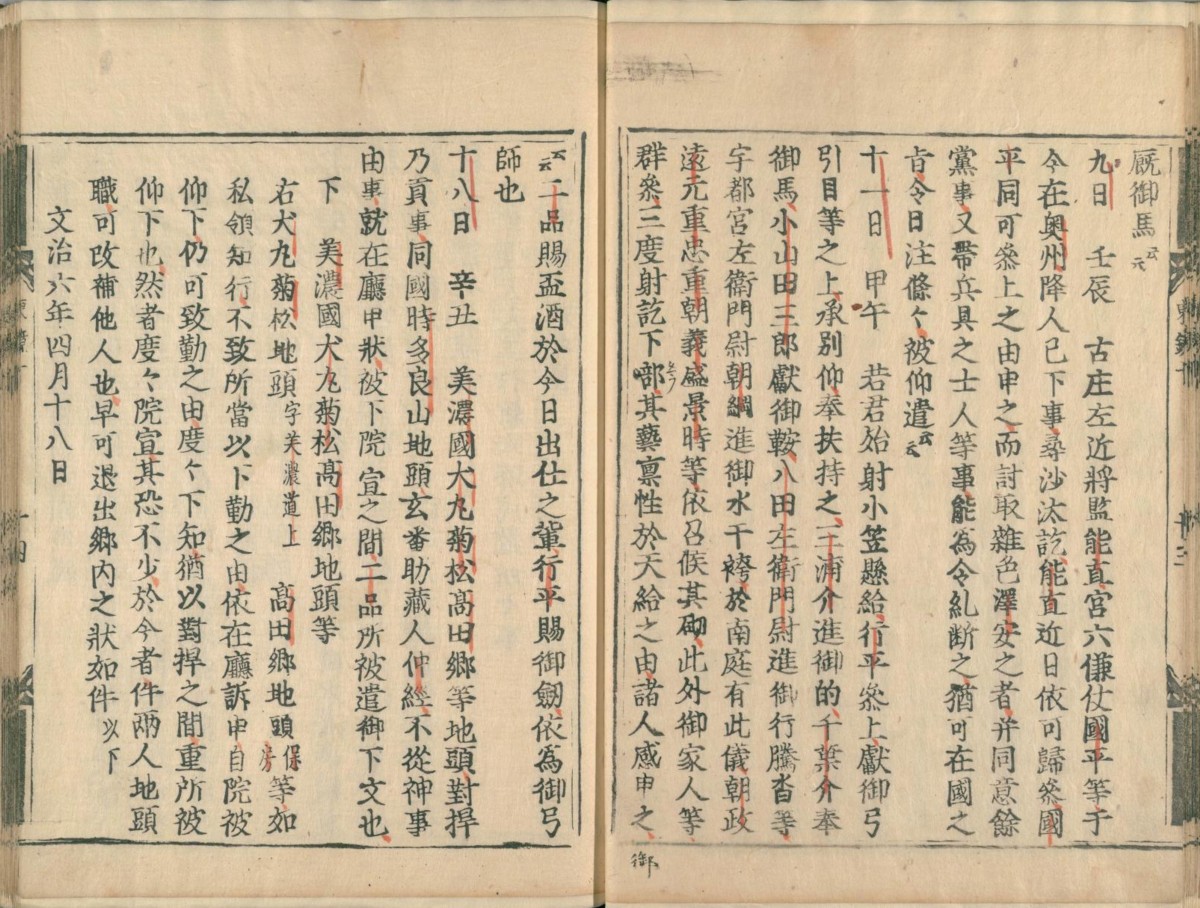 厩御馬云云
九日　壬辰　古庄左近將監能直、宮六傔仗國平等、于
今在奥州、降人已下事尋沙汰訖、能直近日依可歸參、國
平同可參上之由申之、而討取雜色澤安之者、并同意餘
黨事、又帶兵具之士人等事、能爲令糺断之、猶可在國之
旨、今日注條々、被仰遣云云
十一日　甲午　若君始射小笠懸給、行平參上、獻御弓
引目等之上、承別仰、奉扶持之、三浦介進御的、千葉介奉
御馬、小山田三郎獻御鞍、八田左衛門尉進御行騰沓等、
宇都宮左衛門尉朝綱進御水干袴、於南庭有此儀、朝政
遠元重忠重朝義盛景時等、依召候其砌、此外御家人等、
群參、三度射訖下部、其藝禀性於天給之由、諸人感申之、
御
云云二品賜盃酒於今日出仕之輩、行平賜御劔、依爲御弓
師也
十八日　辛丑　美濃國犬丸菊松髙田郷等地頭、對捍
乃貢事、同國時多良山地頭玄番助藏人仲經不從神事
由事、就在廳申狀、被下院宣之間、二品所被遣御下文也、
下　美濃國犬丸菊松髙田郷地頭等
右犬丸菊松地頭字美濃道上　髙田郷地頭保房等、如
私領知行、不致所當以下勤之由、依在廳訴申、自院被
仰下、仍可致勤之由、度々下知、猶以對捍之間、重所被
仰下也、然者度々院宣、其恐不少、於今者、件兩人地頭
職可改補他人也、早可退出郷内之狀如件以下
文治六年四月十八日
東鑑十
十四